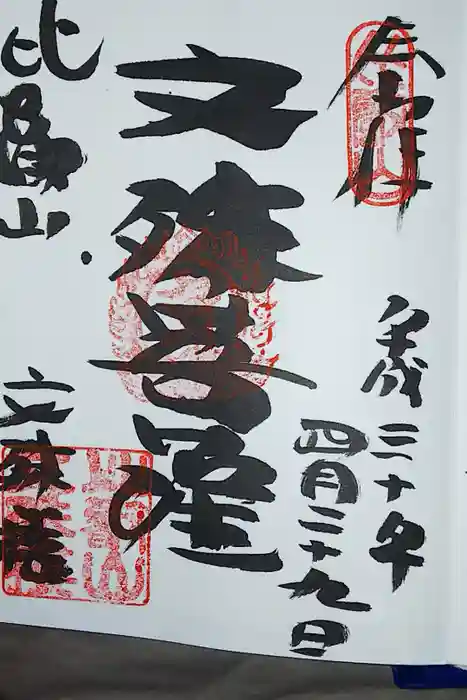 奉拝
平成三十年
四月二十九日
文殊菩薩
比叡山
文殊書